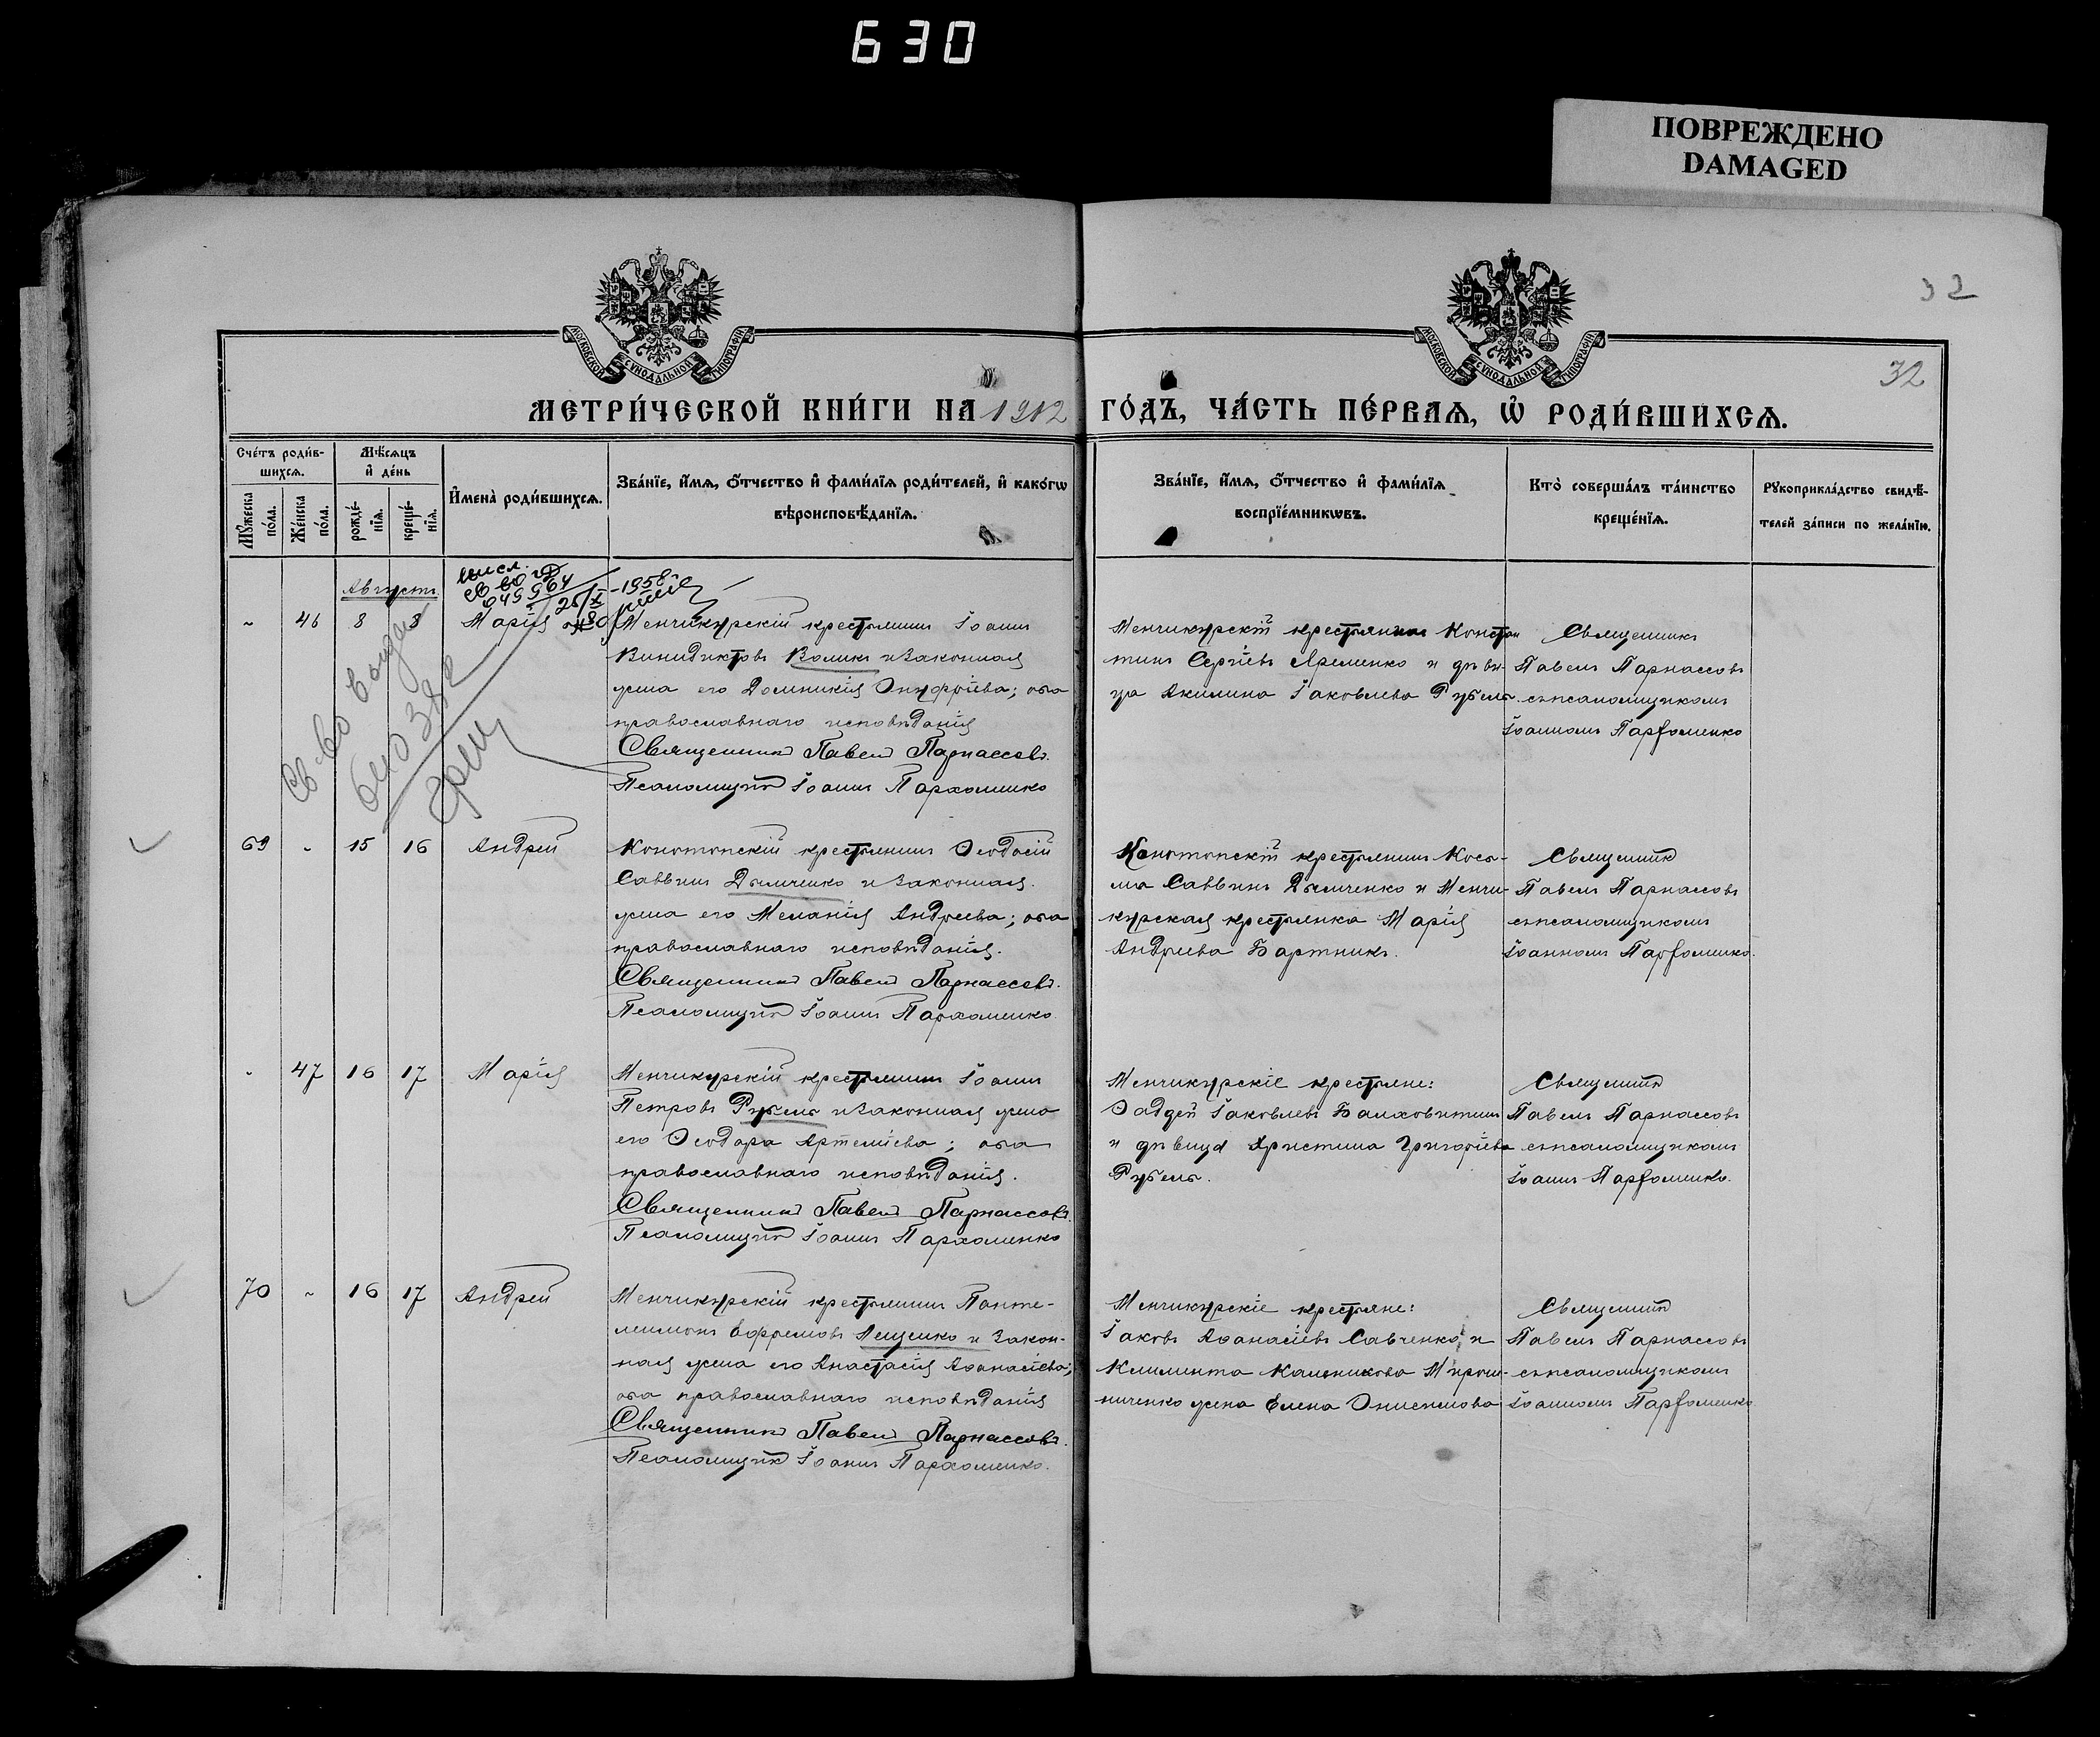 630
ПОВРЕЖДЕНО
DAMAGED
32
32
МОСКОВСКОЙ СѴНОДАЛЬНОЙ ТИПОГРАФІИ
МОСКОВСКОЙ СѴНОДАЛЬНОЙ ТИПОГРАФІИ
МЕТРИ́ЧЕСКОЙ КНИ́ГИ НА 1912 ГО́ДЪ, ЧА́СТЬ ПЕ́РВАѦ, Ѡ҆ РОДИ́ВШИХСѦ.
Сче́тъ роди́в-
шихсѧ.
Мѣ́сѧцъ
и҆ де́нь
Мꙋ́жеска по́ла.
Же́нска по́ла.
рожде́-
нїѧ.
креще́-
нїѧ.
И҆мена̀ роди́вшихсѧ.
Зва́нїе, и҆́мѧ, ѻ҆́тчество и҆ фами́лїѧ роди́телей, и҆ како́гѡ
вѣроисповѣ́данїѧ.
Зва́нїе, и҆́мѧ, ѻ҆́тчество и҆ фами́лїѧ
воспрїе́мникѡвъ.
Кто̀ соверша́лъ та́инство
креще́нїѧ.
Рꙋкоприкла́дство свидѣ́-
телей за́писи по жела́нїю.
Августъ
1958
~ 46 8 8 Марія
Менчикурскій крестьянинъ Іоаннъ
Винидиктовъ Воликъ и законная
жена его Домникія Онуфріева; оба
православнаго исповѣданія
Священникъ Павелъ Парнассовъ.
Псаломщикъ Іоаннъ Пархоменко
Менчикурскій крестьянинъ Констан
тинъ Сергіевъ Яременко и дѣви-
ца Акилина Іаковлева Рубель.
Священникъ
Павелъ Парнассовъ
съ псаломщикомъ
Іоанномъ Парфоменко
Св во выдан
69 - 15 16 Андрей
Конотопскій крестьянинъ Ѳеодосій
Саввинъ Дымченко и законная
жена его Меланія Андреева; оба
православнаго исповѣданія.
Священникъ Павелъ Парнассовъ.
Псаломщикъ Іоаннъ Пархоменко
Конотопскій крестьянинъ Кось-
ма Саввинъ Дымченко и Менчи-
курская крестьянка Марія
Андреева Бартникъ.
Священникъ
Павелъ Парнассовъ
съ псаломщикомъ
Іоанномъ Парфоменко.
- 47 16 17 Марія
Менчикурскій крестьянинъ Іоаннъ
Петровъ Рубель и законная жена
его Ѳеодора Артеміева; оба
православнаго исповѣданія.
Священникъ Павелъ Парнассовъ.
Псаломщикъ Іоаннъ Пархоменко
Менчикурскіе крестьяне:
Ѳаддей Іаковлевъ Балховитинъ
и дѣвица Христина Григоріева
Рубель.
Священникъ
Павелъ Парнассовъ
съ псаломщикомъ
Іоаннъ Парфоменко.
70 ~ 16 17 Андрей
Менчикурскій крестьянинъ Панте-
леимонъ Ефремовъ Лещенко и закон-
ная жена его Анастасія Аѳанасіева;
оба православнаго исповѣданія
Священникъ Павелъ Парнассовъ.
Псаломщикъ Іоаннъ Пархоменко.
Менчикурскіе крестьяне:
Іаковъ Аѳанасіевъ Савченко и
Климента Каленикова Мирош-
ниченко жена Елена Онисимова
Священникъ
Павелъ Парнассовъ
съ псаломщикомъ
Іоанномъ Парфоменко